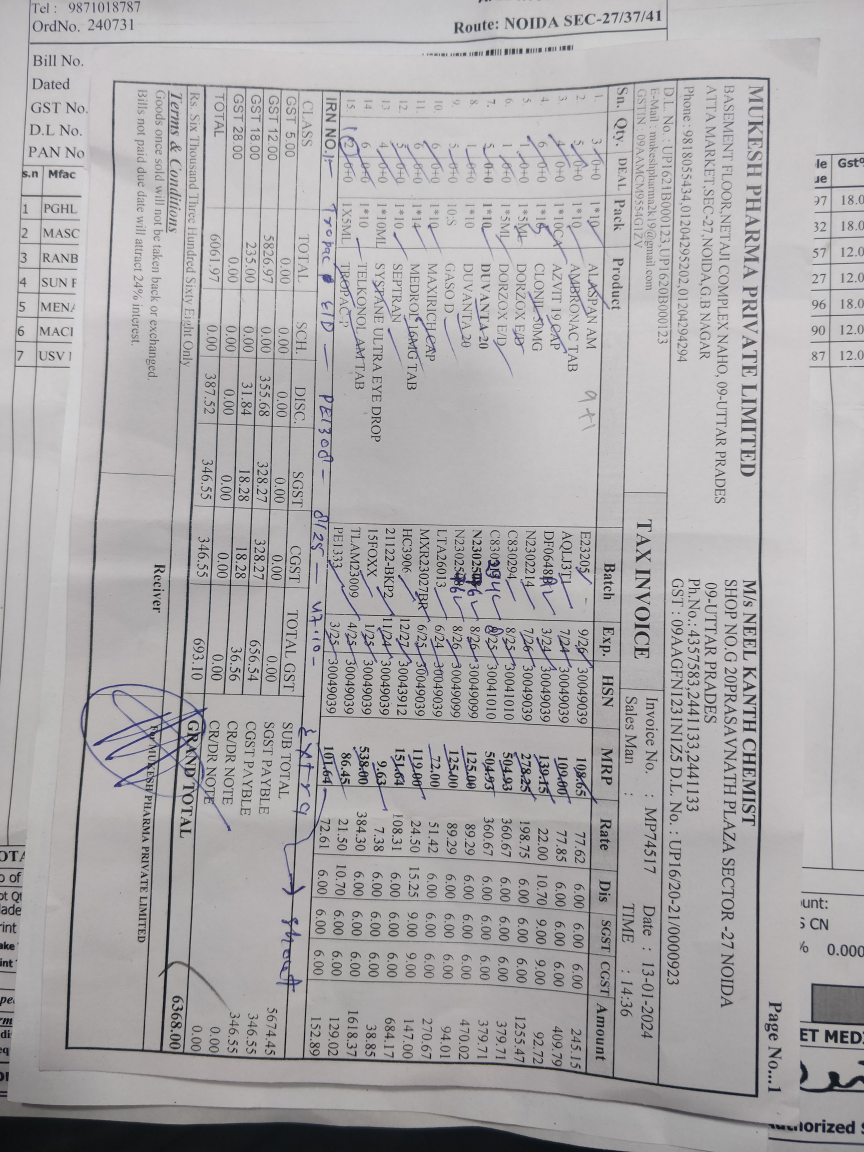 Tel : 9871018787
OrdNo. 240731
Route: NOIDA SEC-27/37/41
Bill No.
Dated
GST No.
D.L No.
PAN No
s.n Mfac
1 PGHL
2 MASC
3 RANB
4 SUN F
5 MEN
6 MACI
7 USV
Gst%
97 18.0
32 18.0
57 12.0
27 12.0
96 18.0
90 12.0
87 12.0
Page No...1
MUKESH PHARMA PRIVATE LIMITED
BASEMENT FLOOR,NETAJI COMPLEX NAHO, 09-UTTAR PRADES
ATTA MARKET,SEC-27,NOIDA,G.B NAGAR
Phone : 9818055434,01204295202,01204294294
D.L. No. : UP1621B000123,UP1620B000123
E-Mail : mukeshpharma2k19@gmail.com
GSTIN : 09AAMCM9554G1ZV
M/s NEEL KANTH CHEMIST
SHOP NO.G 20PRASAVNATH PLAZA SECTOR -27 NOIDA
09-UTTAR PRADES
Ph.No.: 4357583,2441133,2441133
GST : 09AAGFN1231N1Z5 D.L. No. : UP16/20-21/0000923
TAX INVOICE
Invoice No. : MP74517 Date : 13-01-2024
Sales Man : TIME : 14:36
Sn. Qty. DEAL Pack Product Batch Exp. HSN MRP Rate Dis SGST CGST Amount
1. 3 0+0 1*10 ALASPAN AM E23205 9/26 30049039 108.65 77.62 6.00 6.00 6.00 245.15
2. 5 0+0 1*10 AMBRONAC TAB 9+1 AQLJ3T1 7/24 30049039 109.00 77.85 6.00 6.00 6.00 409.79
3. 0+0 AZVIT 19 CAP 3/24 30049039 139.15 22.00 10.70 9.00 9.00 92.72
4. 6 0+0 CLONIL 50MG N2302214 7/26 30049039 278.25 198.75 6.00 6.00 6.00 1255.47
5. 1 0+0 1*5ML DORZOX E/D C830294 8/25 30041010 504.93 360.67 6.00 6.00 6.00 379.71
6. 1 0+0 1*5ML DORZOX E/D 8/25 30041010 504.93 360.67 6.00 6.00 6.00 379.71
7. 5 0+0 1*10 DUVANTA-20 8/26 30049099 125.00 89.29 6.00 6.00 6.00 470.02
8. 1 0+0 1*10 DUVANTA-20 8/26 30049099 125.00 89.29 6.00 6.00 6.00 94.01
9. 5 0+0 10;S GASO D LTA26013 6/24 30049039 72.00 51.42 6.00 6.00 6.00 270.67
10. 6 0+0 1*10 MAXIRICH CAP MXR23027BR 6/25 30049039 119.00 24.50 15.25 9.00 9.00 147.00
11. 6 0+0 1*14 MEDROL 16MG TAB HC3906 12/27 30043912 151.64 108.31 6.00 6.00 6.00 684.17
12. 5 0+0 1*10 SEPTRAN 21122-BKP2 11/24 30049039 9.63 7.38 6.00 6.00 6.00 38.85
13. 4 0+0 1*10ML SYSPANE ULTRA EYE DROP 15FOXX 1/25 30049039 538.00 384.30 6.00 6.00 6.00 1618.37
14. 6 0+0 1*10 TELKONOL AM TAB TLAM23009 4/25 30049039 86.45 21.50 10.70 6.00 6.00 129.02
15. 2 0+0 1X5ML TROPAC P PE1333 3/25 30049039 101.64 72.61 6.00 6.00 6.00 152.89
IRN NO.:- Tropac P E/D - PE1308 - extra → short
CLASS TOTAL SCH. DISC. SGST CGST TOTAL GST
GST 5.00 0.00 0.00 0.00 0.00 0.00 0.00
GST 12.00 5826.97 0.00 355.68 328.27 328.27 656.54
GST 18.00 235.00 0.00 31.84 18.28 18.28 36.56
GST 28.00 0.00 0.00 0.00 0.00 0.00 0.00
TOTAL 6061.97 0.00 387.52 346.55 346.55 693.10
SUB TOTAL 5674.45
SGST PAYBLE 346.55
CGST PAYBLE 346.55
CR/DR NOTE 0.00
CR/DR NOTE 0.00
GRAND TOTAL 6368.00
Rs. Six Thousand Three Hundred Sixty Eight Only
Terms & Conditions
Goods once sold will not be taken back or exchanged.
Bills not paid due date will attract 24% interest.
Reciver
For MUKESH PHARMA PRIVATE LIMITED
CN
0.000
ET MEDI
uthorized S